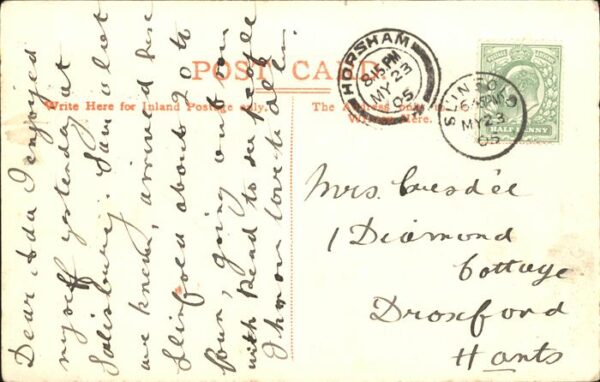 POST CARD
Write Here for Inland Postage only.
The Address Only to be Written Here.
HORSHAM
8.15 PM
MY 23
05
SLINFOLD
MY 23
05
HALF PENNY
Dear Ada I enjoyed
myself yesterday at
Salisbury.
arrived here
Slinfold about 20 to
four, going out on
with to see people
I know love to all
Mrs.
1 Diamond
Cottage
Droxford
Hants